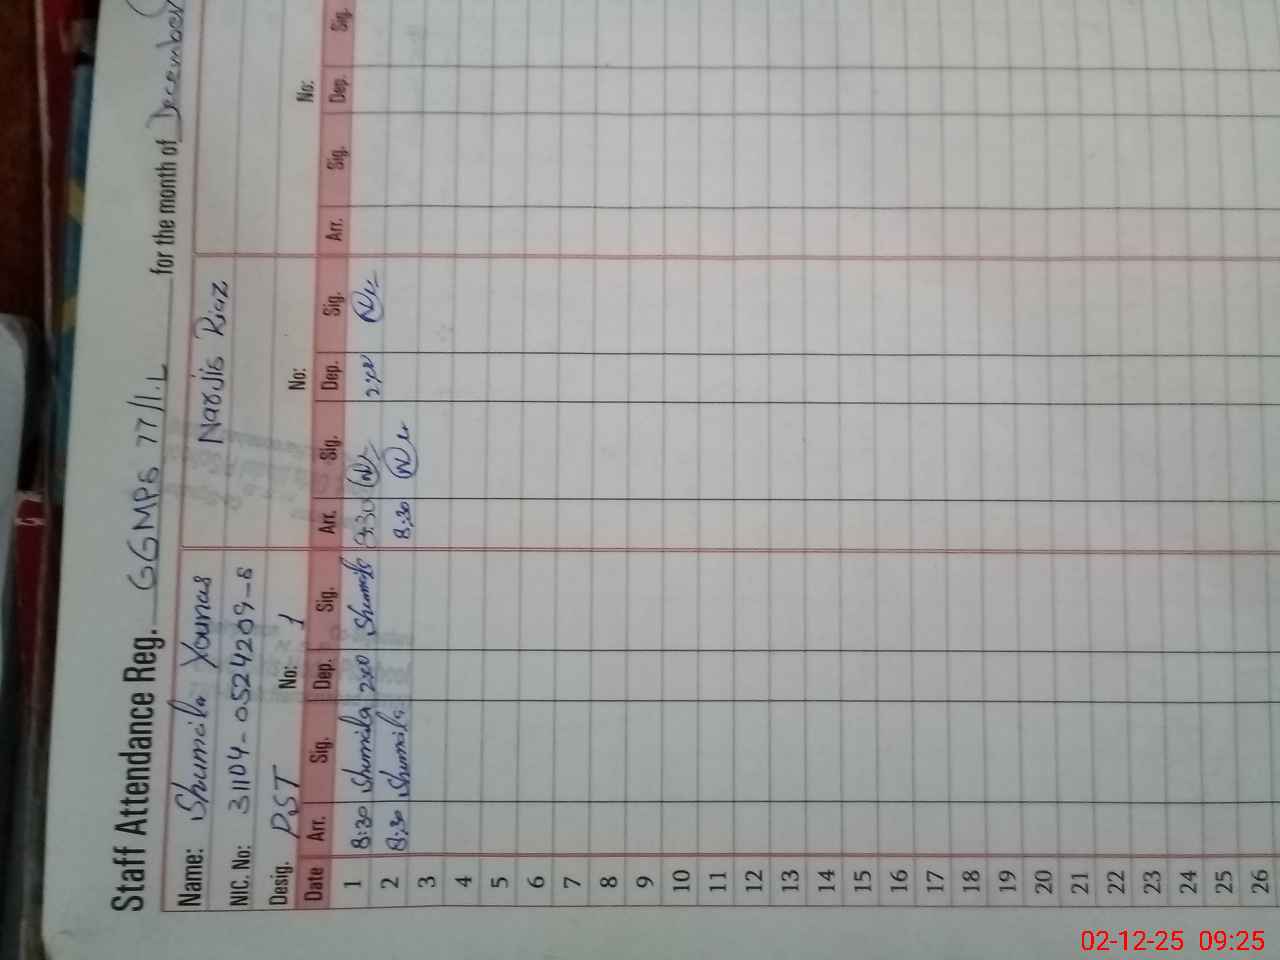 Staff Attendance Reg. GGMPS 77/1.L for the month of December
Name: Shumaila Younas Narjis Riaz
NIC. No: 31104-0524209-8
Desig. PST No: 1 No: No:
Date Arr. Sig. Dep. Sig. Arr. Sig. Dep. Sig. Arr. Sig. Dep. Sig.
1 8:30 Shumaila 2:00 Shumaila 8:30 2:00
2 8:30 Shumaila 8:30
3
4
5
6
7
8
9
10
11
12
13
14
15
16
17
18
19
20
21
22
23
24
25
26
02-12-25 09:25